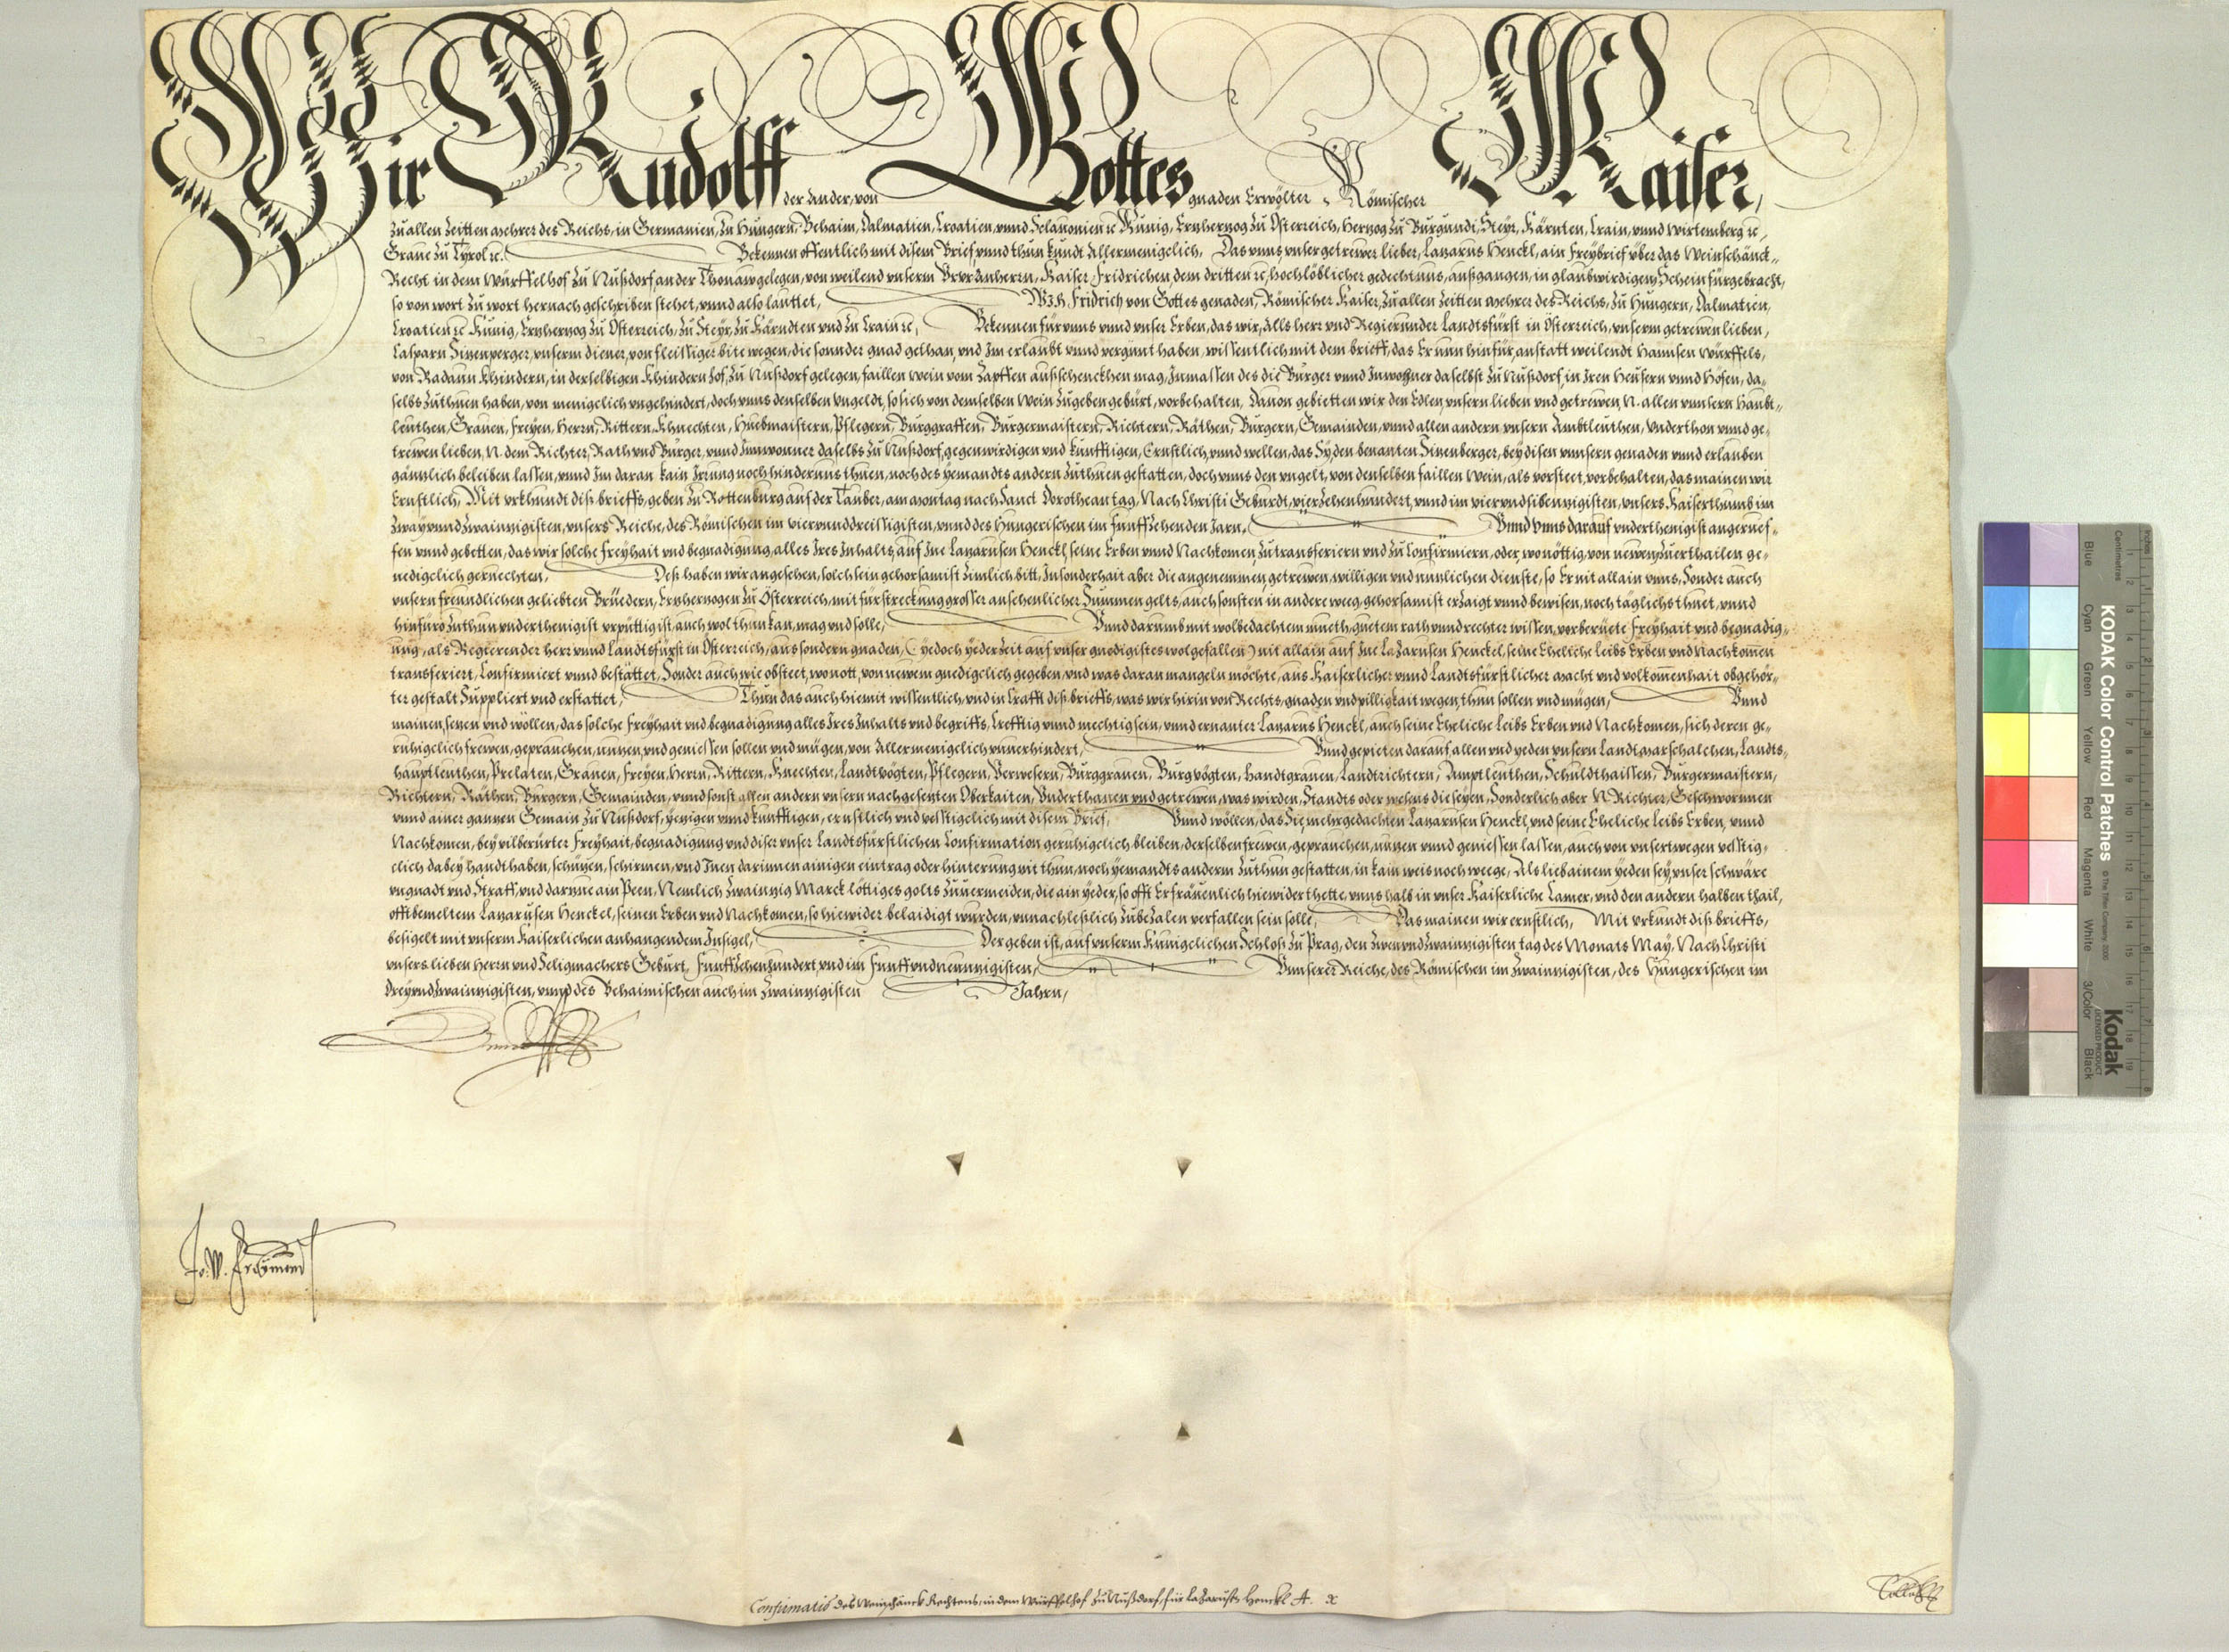 Wir Rudolff der ander, von Gottes gnaden Erwölter Römischer Kaiser,
Zu allen Zeitten mehrer des Reichs, in Germanien, Zu Hungern, Behaim, Dalmatien, Croatien, vnnd Sclauonien ꝛc Künig, Ertzhertzog Zu Österreich, Hertzog Zu Burgundi, Steyr, Kärnten, Crain, vnnd Wirtemberg ꝛc,
Graue Zu Tyrol ꝛc. Bekennen offentlich mit disem Brief, vnnd thun kundt Allermenigclich, Das vnns vnser getrewer lieber, Lazarus Henckl, ain Freybrief vber das Weinschänck„
Recht in dem Würffelhof Zu Nußdorf an der Thonaw gelegen, von weilend vnserm Vrvränherrn, Kaiser Fridrichen, dem dritten ꝛc, hochlöblicher gedechtnus, außgangen, in glaubwirdigem Schein fürgebracht,
so von wort Zu wort hernach geschriben stehet, vnnd also lauttet, Wir Fridrich von Gottes genaden, Römischer Kaiser, Zu allen Zeitten mehrer des Reichs, Zu Hungern, Dalmatien,
Croatien ꝛc Künig, Ertzhertzog Zu Österreich, Zu Steyr, Zu Kärndten vnd Zu Crain ꝛc, Bekennen für vnns vnnd vnser Erben, das wir, Alls herr vnd Regierunder Landtsfürst in Österreich, vnserm getrewen lieben,
Casparn Sinenperger, vnserm diener, von fleissiger bite wegen, die sonnder gnad gethan, vnd Im erlaubt vnnd vergunt haben, wissentlich mit dem brieff, das Er nun hinfür, anstatt weilendt Hannsen Würffels,
von Radaun Khindern, in derselbigen Khindern hof, Zu Nußdorf gelegen, faillen Wein vom Zapffen außschenckhen mag, Inmassen des die Burger vnnd Inwohner daselbst Zu Nußdorf, in Iren Heusern vnnd Höfen, da„
selbs Zuthuen haben, von menigclich vngehindert, doch vnns denselben Vngeldt, so sich von demselben Wein Zugeben gebürt, vorbehalten, Dauon gebietten wir den Edlen, vnsern lieben vnd getrewen, N. allen vnnsern Haubt„
leuthen, Grauen, Freyen, Herrn, Rittern, Khnechten, Huebmaistern, Pflegern, Burggraffen, Burgermaistern, Richtern, Räthen, Burgern, Gemainden, vnnd allen andern vnsern Ambtleuthen, Vnderthon vnnd ge„
trewen lieben, N. dem Richter, Rath vnd Burger, vnnd Innwonner daselbs Zu Nußdorf, gegenwirdigen vnd künfftigen, Ernstlich, vnnd wellen, das Sy, den benanten Sinenberger, bey disen vnnsern genaden vnnd erlauben
gäntzlich beleiben lassen, vnnd Im daran kain Irrung noch hindernus thuen, noch des yemandts andern Zuthuen gestatten, doch vnns den vngelt, von denselben faillen Wein, als vorsteet, vorbehalten, das mainen wir
Ernstlich, Mit vrkhundt diß brieffs, geben Zu Rottenburg auf der Tauber, am montag nach Sanct Dorothean tag, Nach Christi Geburdt, vierzehenhundert, vnnd im vier vnd sibentzigisten, vnsers Kaiserthumb im
Zwayvnnd Zwaintzigisten, vnsers Reichs, des Römischen im viervnnd dreissigisten, vnnd des Hungerischen im fünffzehenden Jarn. Vnnd vnns darauf vnderthenigist angeruef„
fen vnnd gebetten, das wir solche Freyhait vnd begnadigung, alles Ires Inhalts, auf Ine Lazarusen Henckl, seine Erben vnnd Nachkomen, Zu transferiern vnd Zu Confirmiern, oder, wo nöttig, von newen Zu erthailen ge„
nedigclich geruechten, Deß haben wir angesehen, solch sein gehorsamist Zimlich bitt, Insonderhait aber die angenemmen, getrewen, willigen vnd nutzlichen dienste, so Er nit allain vnns, Sonder auch
vnsern freundlichen geliebten Brüedern, Ertzhertzogen Zu Österreich, mit fürstreckung grosser ansehenlicher Summen gelts, auch sonsten in andere weeg, gehorsamist erzaigt vnnd bewisen, noch täglich thuet, vnnd
hinfüro Zuthun vnderthenigist vrpüttig ist, auch wol thun kan, mag vnd solle, Vnnd darumb mit wolbedachtem mueth, guetem rath vnnd rechter wissen, vorberüete Freyhait vnd begnadig„
ung, als Regierender herr vnnd Landtsfürst in Österreich, aus sondern gnaden, (yedoch yederzeit auf vnser gnedigistes wolgefallen) nit allain auf Ine Lazarusen Henckel, seine Eheliche Leibs Erben vnd Nachkomen
transferiert, Confirmiert vnnd bestättet, Sonder auch, wie obsteet, wo nott, von newem gnedigclich gegeben, vnd was daran mangeln möchte, aus Kaiserlicher vnnd Landtsfürstlicher macht vnd volkomenhait obgehör„
ter gestalt Suppliert vnd erstattet, Thun das auch hiemit wissentlich, vnd in Crafft diß brieffs, was wir hirin von Rechts, gnaden vnd pilligkait wegen, thun sollen vnd mügen, Vnnd
mainen, setzen vnd wöllen, das solche Freyhait vnd begnadigung alles Ires Inhalts vnd begriffs, Crefftig vnnd mechtig sein, vnnd ernanter Lazarus Henckl, auch seine Eheliche Leibs Erben vnd Nachkomen, sich deren ge„
ruhigclich frewen, geprauchen, nutzen, vnd geniessen sollen vnd mügen, von Allermenigclich vnuerhindert, Vnnd gepieten darauf allen vnd yeden vnsern Landtmarschalchen, Landts„
hauptleuthen, Prelaten, Grauen, Freyen, Herrn, Rittern, Knechten, Landtvögten, Pflegern, Verwesern, Burggrauen, Burgvögten, Handtgrauen, Landtrichtern, Amptleuthen, Schuldthaissen, Burgermaistern,
Richtern, Räthen, Burgern, Gemainden, vnnd sonst allen andern vnsern nachgesetzten Oberkaiten, Vnderthanen vnd getrewen, was wirden, Standts oder wesens die seyen, Sonderlich aber N. Richter, Geschwornnen
vnnd ainer gantzen Gemain Zu Nußdorf, yetzigen vnnd künfftigen, ernstlich vnd vesstigclich mit disem Brief, Vnnd wöllen, das Sie, mehrgedachten Lazarusen Henckl, vnd seine Eheliche Leibs Erben, vnnd
Nachkomen, bey vilberürter Freyhait, begnadigung vnd diser vnser Landtsfürstlichen Confirmation geruhigclich bleiben, derselben frewen, geprauchen, nützen vnnd geniessen lassen, auch von vnsertwegen vesstig„
clich dabey handthaben, schützen, schirmen, vnd Inen darinnen ainigen eintrag oder hinterung nit thun, noch yemandts anderm Zuthun gestatten, in kain weis noch weege, Als lieb ainem yeden sey, vnser schwäre
vngnadt vnd Straff, vnd darzue ain Peen, Nemlich Zwaintzig Marck löttiges golts Zuuermeiden, die ain yeder, so offt Er fräuenlich hiewider thette, vnns halb in vnser Kaiserliche Camer, vnd den andern halben thail,
offtbemeltem Lazarusen Henckel, seinen Erben vnd Nachkomen, so hiewider belaidigt wurden, vnnachleßlich Zubezalen verfallen sein solle, Das mainen wir ernstlich, Mit vrkundt diß brieffs,
besigelt mit vnserm Kaiserlichen anhangendem Insigel, Der geben ist, auf vnserm Künigclichen Schloß Zu Prag, den Zwenvnd Zwaintzigisten tag des Monats May, Nach Christi
vnsers lieben Herrn vnd Seligmachers Geburt, Funffzehenhundert, vnd im Funffvndneuntzigisten, Vnnserer Reiche, des Römischen im Zwaintzigisten, des Hungerischen im
dreyvnd Zwaintzigisten, vnnd des Behaimischen auch im Zwaintzigisten Jahrn,
Rudolff
Jo. W. Freymond
Confirmatio des Weinschänck Rechtens, in dem Würffelhof Zu Nußdorf, für Lazarusen Henckl
KODAK Color Control Patches
© The Tiffen Company, 2000
Kodak
LICENSED PRODUCT
Inches
Centimetres
Blue Cyan Green Yellow Red Magenta White 3/Color Black